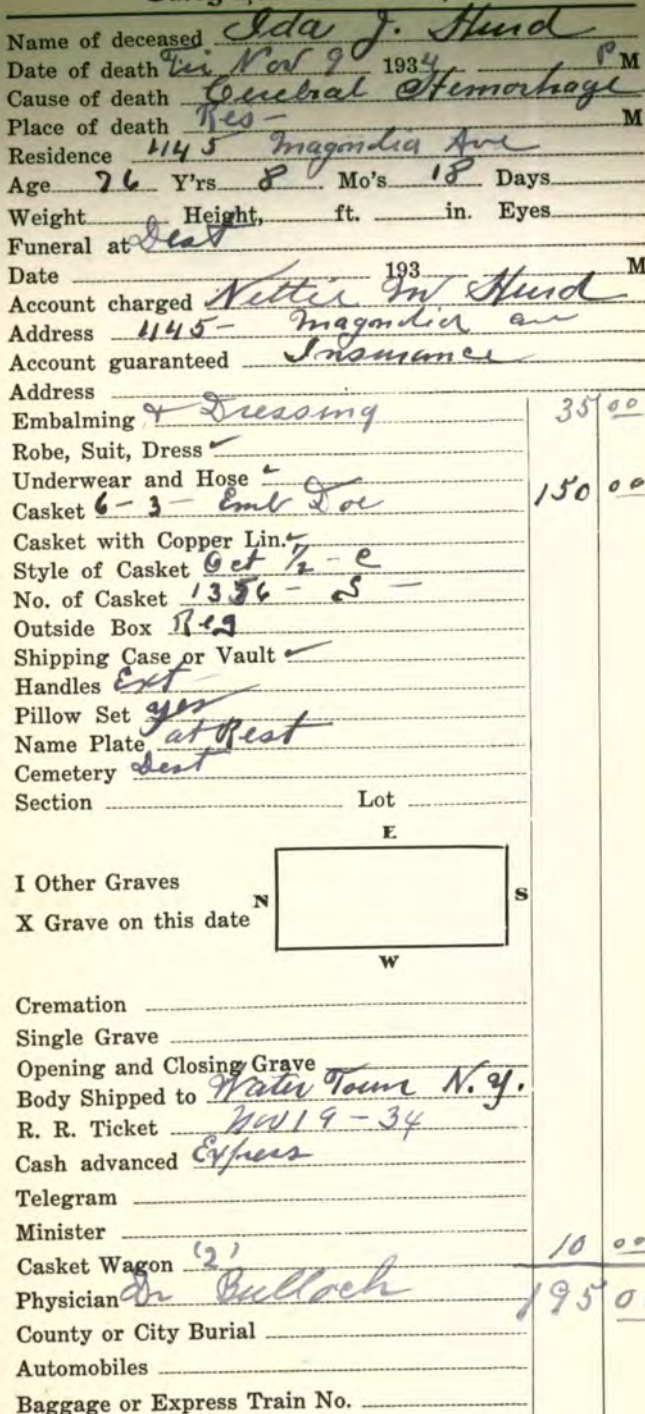 Name of deceased Ida J. Hurd
Date of death Fri Nov 9 1934 P M
Cause of death Cerebral Hemorhage
Place of death Res- M
Residence 1145 Magnolia Ave
Age 76 Y'rs 8 Mo's 18 Days
Weight Height, ft. in. Eyes
Funeral at Dest
Date 193 M
Account charged Nettie M Hurd
Address 1145- Magnolia ave
Account guaranteed Insurance
Address
Embalming & Dressing 35 00
Robe, Suit, Dress
Underwear and Hose
Casket 6-3- Emb Doe 150 00
Casket with Copper Lin.
Style of Casket Oct 1/2 - C
No. of Casket 1356 - S -
Outside Box Reg
Shipping Case or Vault
Handles Ext
Pillow Set yes
Name Plate at Rest
Cemetery Dest
Section Lot
E
I Other Graves
N S
X Grave on this date
W
Cremation
Single Grave
Opening and Closing Grave
Body Shipped to Water Town N.Y.
R. R. Ticket Nov 19-34
Cash advanced Express
Telegram
Minister
Casket Wagon (2) 10 00
Physician Dr Bulloch 195 0
County or City Burial
Automobiles
Baggage or Express Train No.